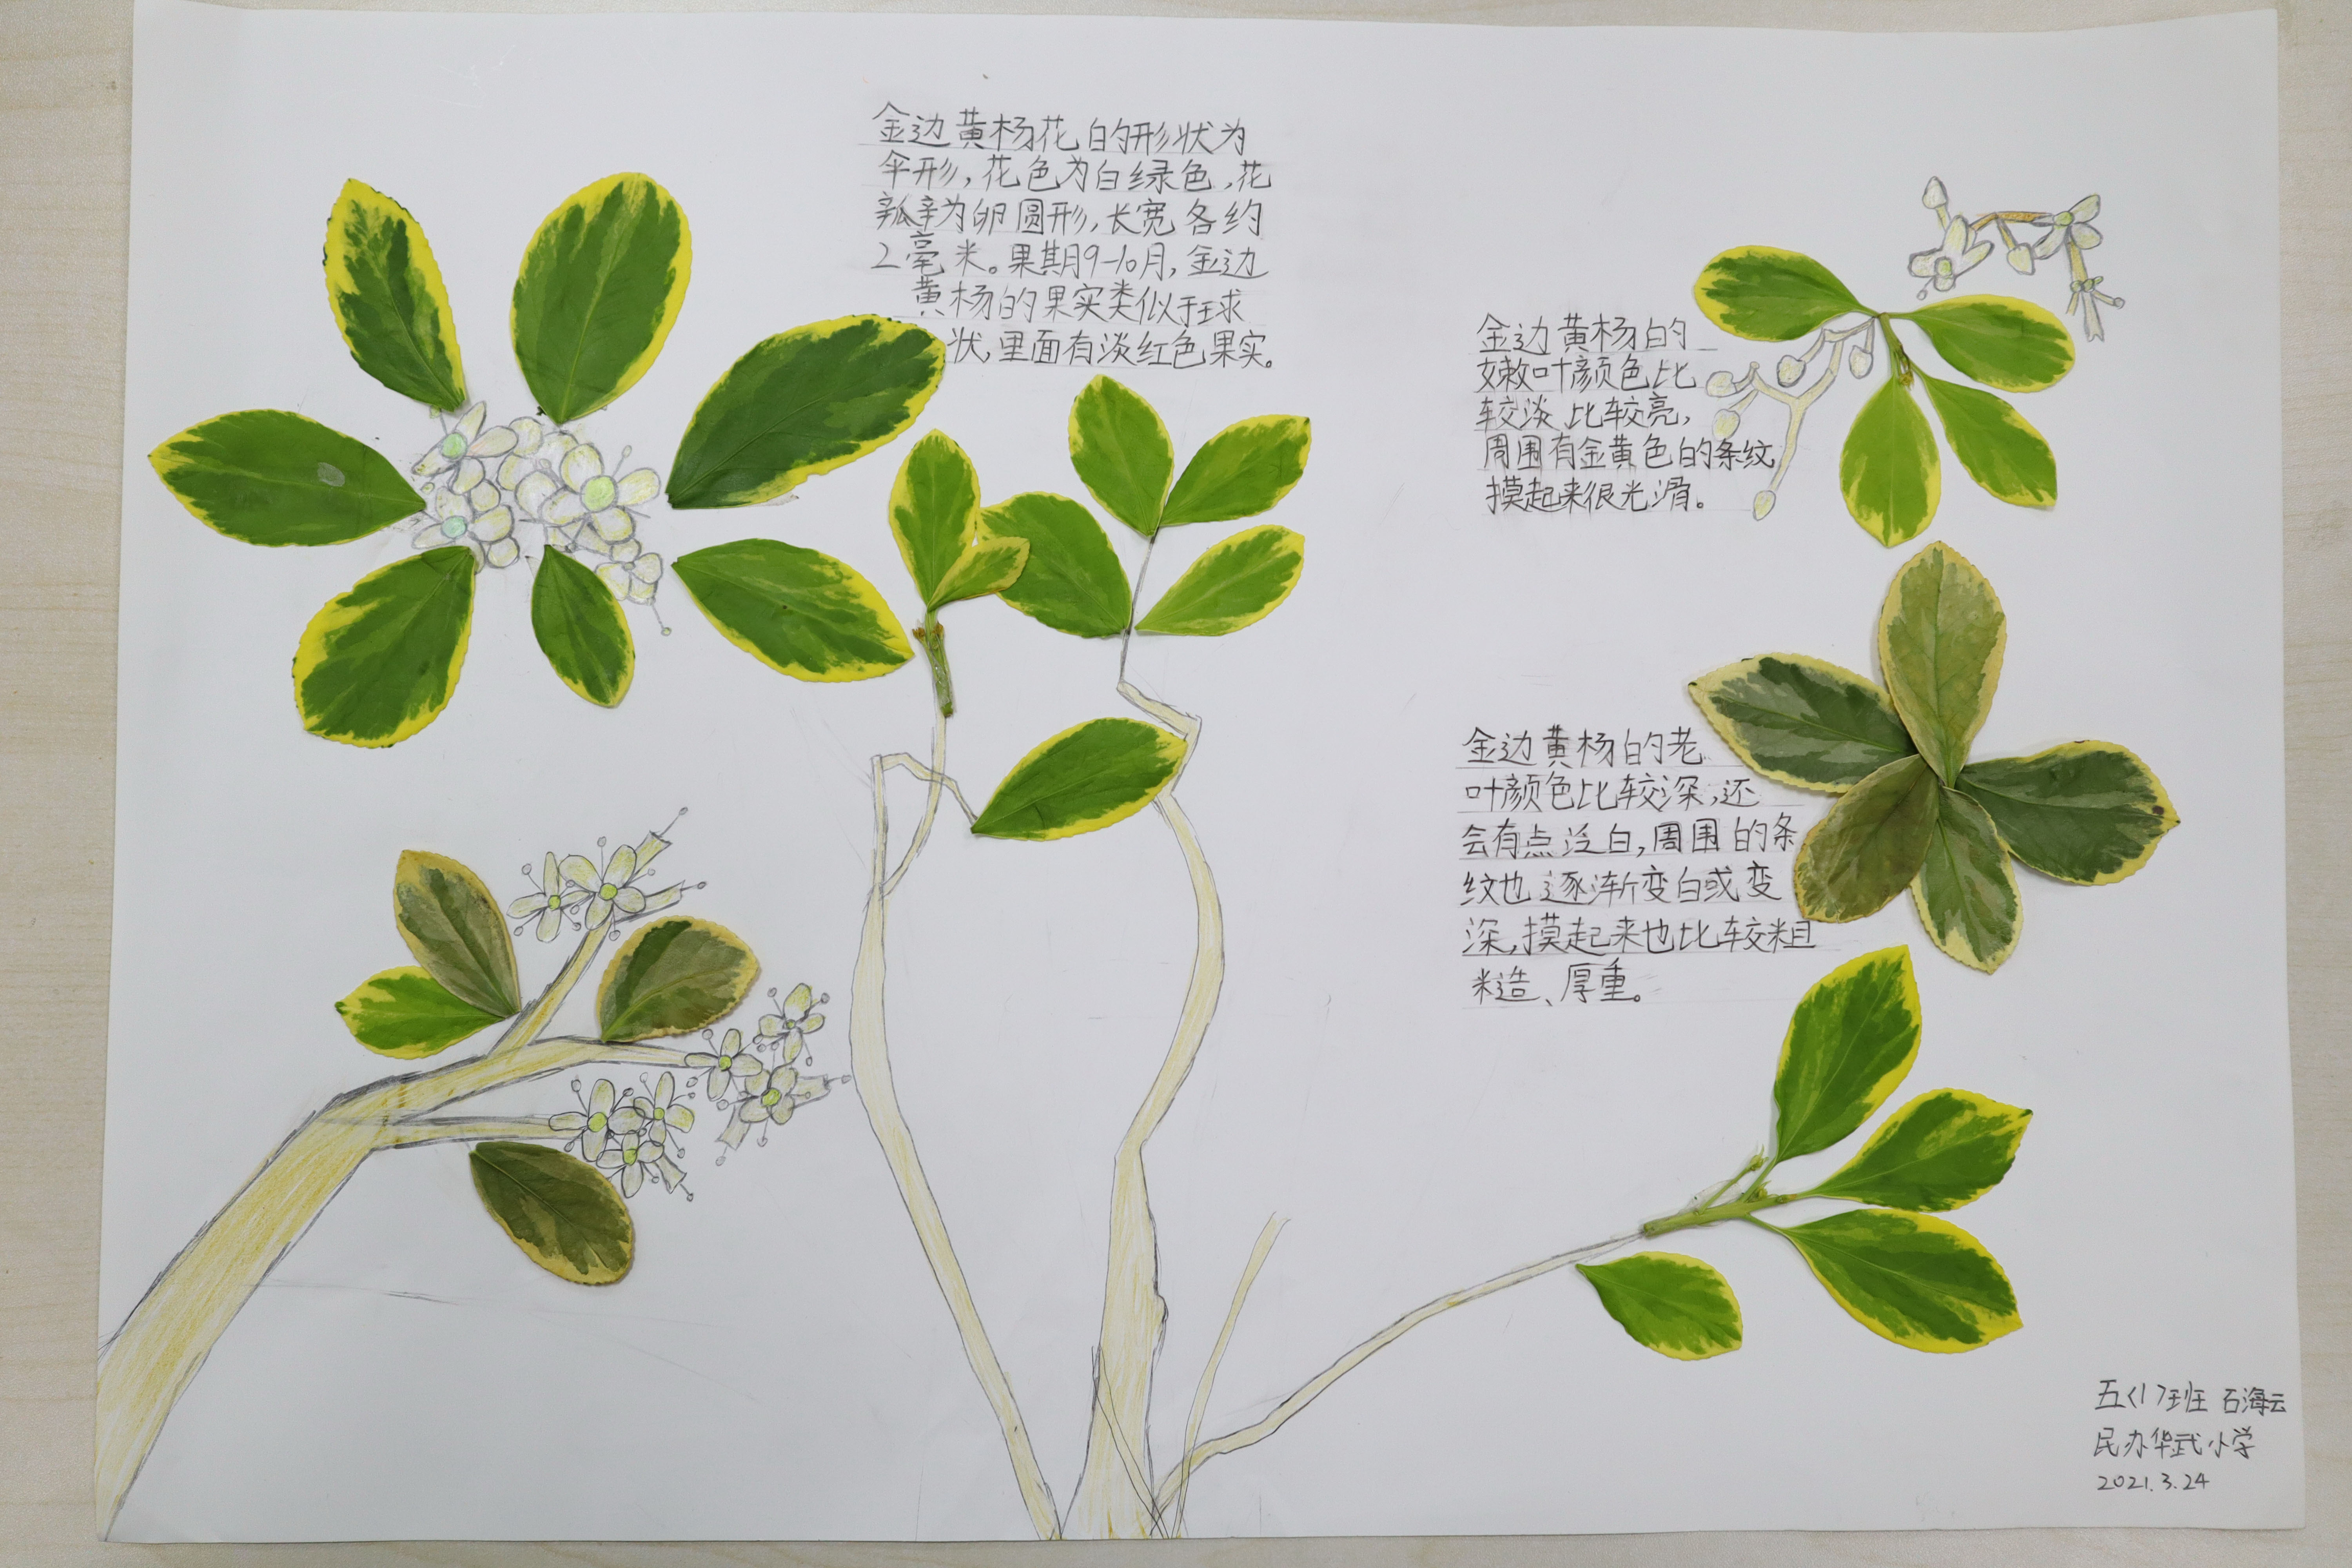 金边黄杨花的形状为
伞形，花色为白绿色，花
瓣为卵圆形，长宽各约
2毫米。果期9-10月，金边
黄杨的果实类似于球
状，里面有淡红色果实。
金边黄杨的
嫩叶颜色比
较淡 比较亮，
周围有金黄色的条纹
摸起来很光滑。
金边黄杨的老
叶颜色比较深，还
会有点泛白，周围的条
纹也逐渐变白或变
深，摸起来也比较粗
糙、厚重。
五〈1〉班 石海云
民办华武小学
2021.3.24